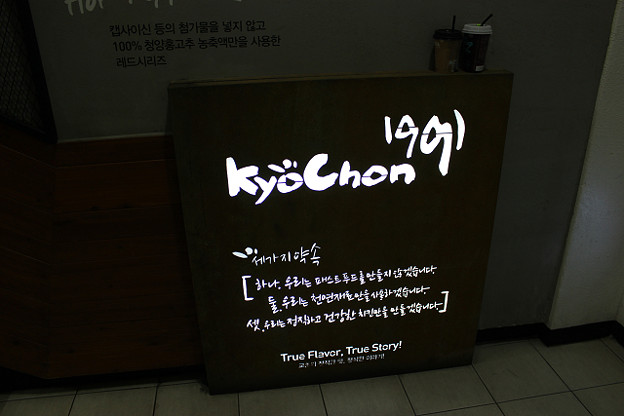 캡사이신 등의 첨가물을 넣지 않고
100% 청양홍고추 농축액만을 사용한
레드시리즈
1991
KyoChon
세가지 약속
[ 하나, 우리는 패스트푸드를 만들지 않겠습니다.
둘, 우리는 천연재료만을 사용하겠습니다.
셋, 우리는 정직하고 건강한 치킨만을 만들겠습니다. ]
True Flavor, True Story!